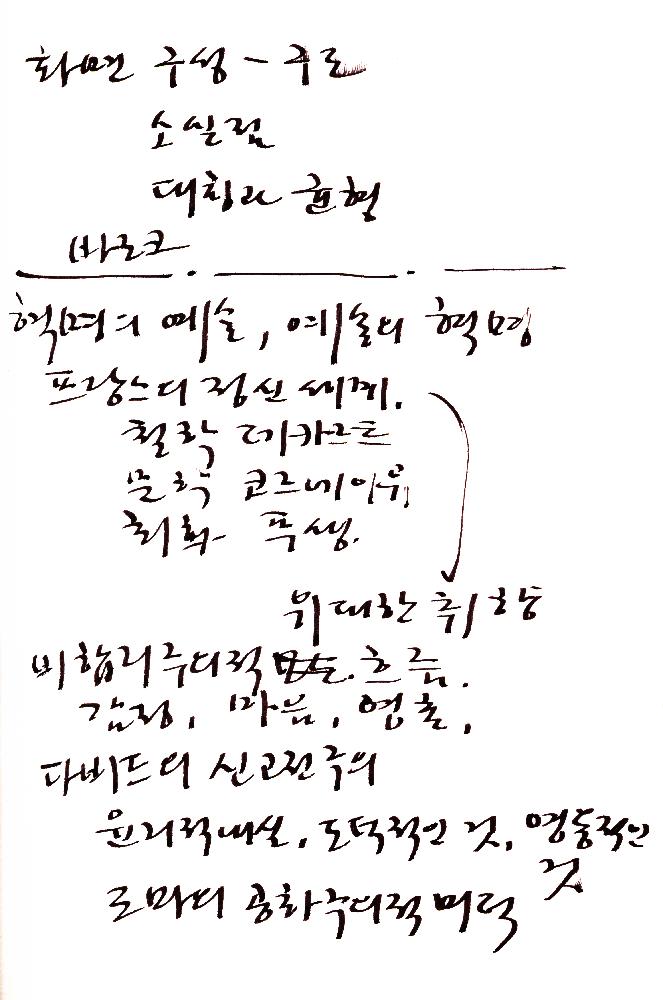 화면 구성 - 구도
소실점
대칭과 균형
바로크
혁명의 예술, 예술의 혁명
프랑스의 정신세계.
철학 데카르트
문학 코르네이유
회화 푸생.
위대한 취향
비합리주의적 흐름.
감정, 마음, 영혼,
다비드의 신고전주의
윤리적 내실, 도덕적인 것, 영웅적인
것
로마의 공화주의적 미덕